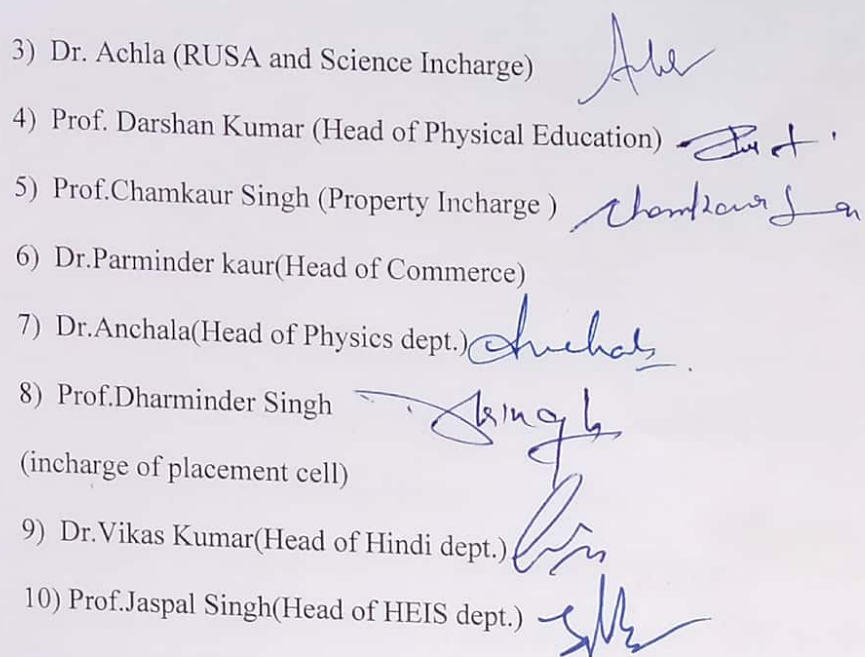 3) Dr. Achla (RUSA and Science Incharge)
4) Prof. Darshan Kumar (Head of Physical Education)
5) Prof.Chamkaur Singh (Property Incharge ) Chamkaur
6) Dr.Parminder kaur(Head of Commerce)
7) Dr.Anchala(Head of Physics dept.) Anchala
8) Prof.Dharminder Singh Dsingh
(incharge of placement cell)
9) Dr.Vikas Kumar(Head of Hindi dept.)
10) Prof.Jaspal Singh(Head of HEIS dept.)